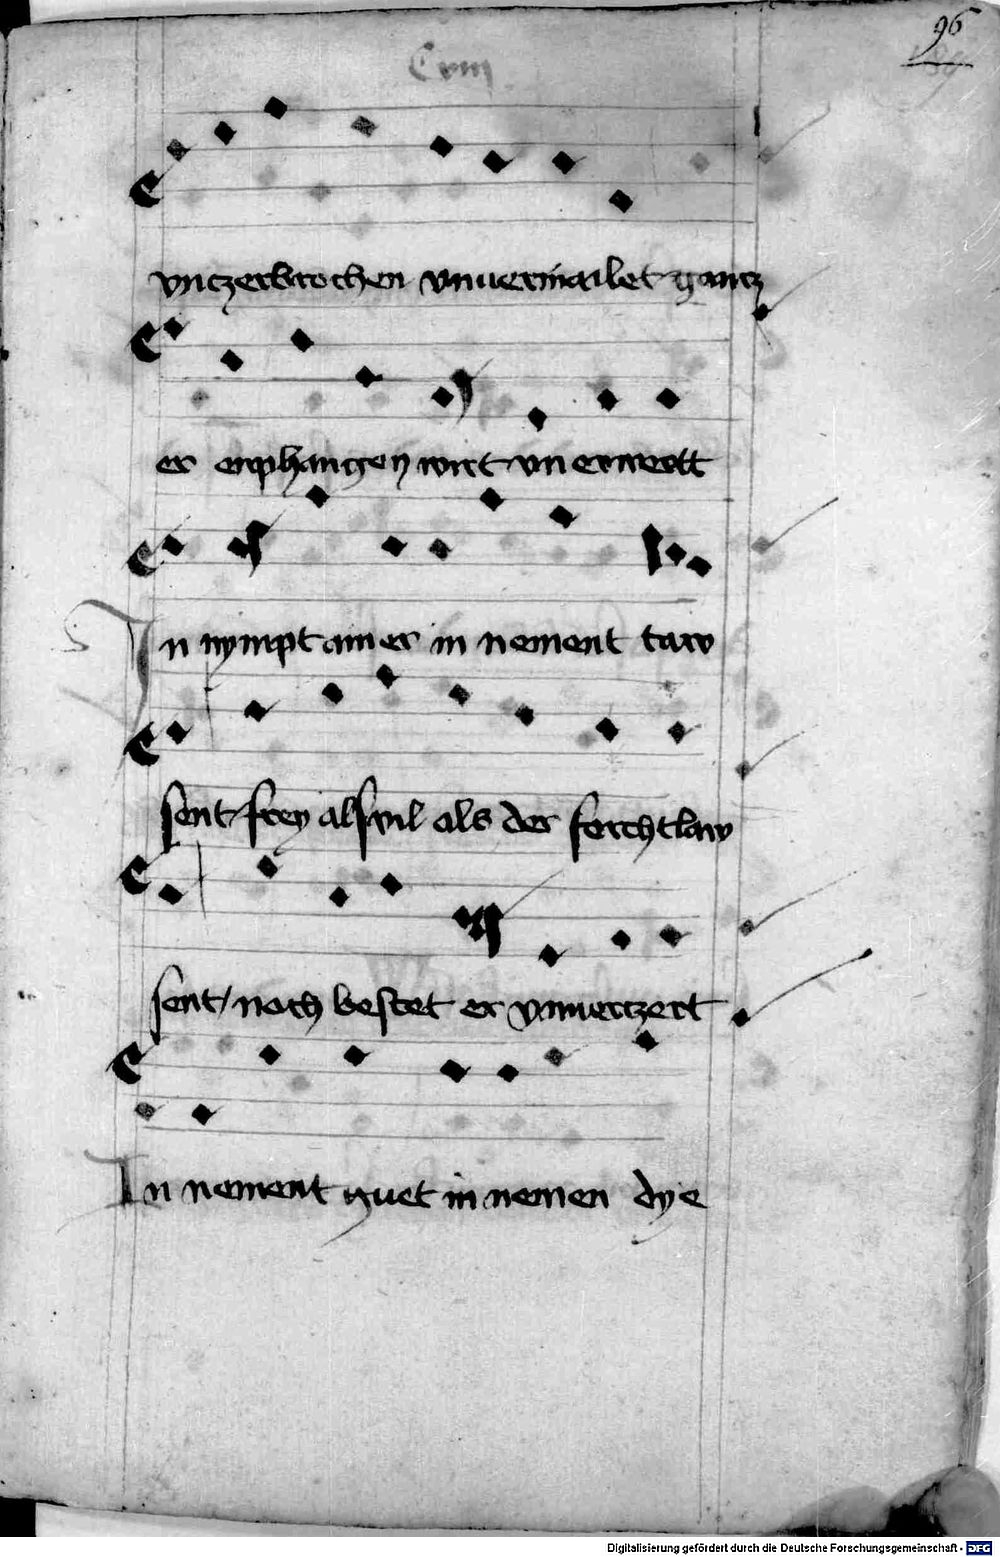 96
Cviij
vnczerbrochen vnuermailet gancz
er enphangen wirt vn erwertt
In nympt ainer in nement taw
sent frey alsuil als der ferchtlaw
sent / noch bestet er vnuerczert
In nement guet in nemen dye
Digitalisierung gefördert durch die Deutsche Forschungsgemeinschaft - DFG